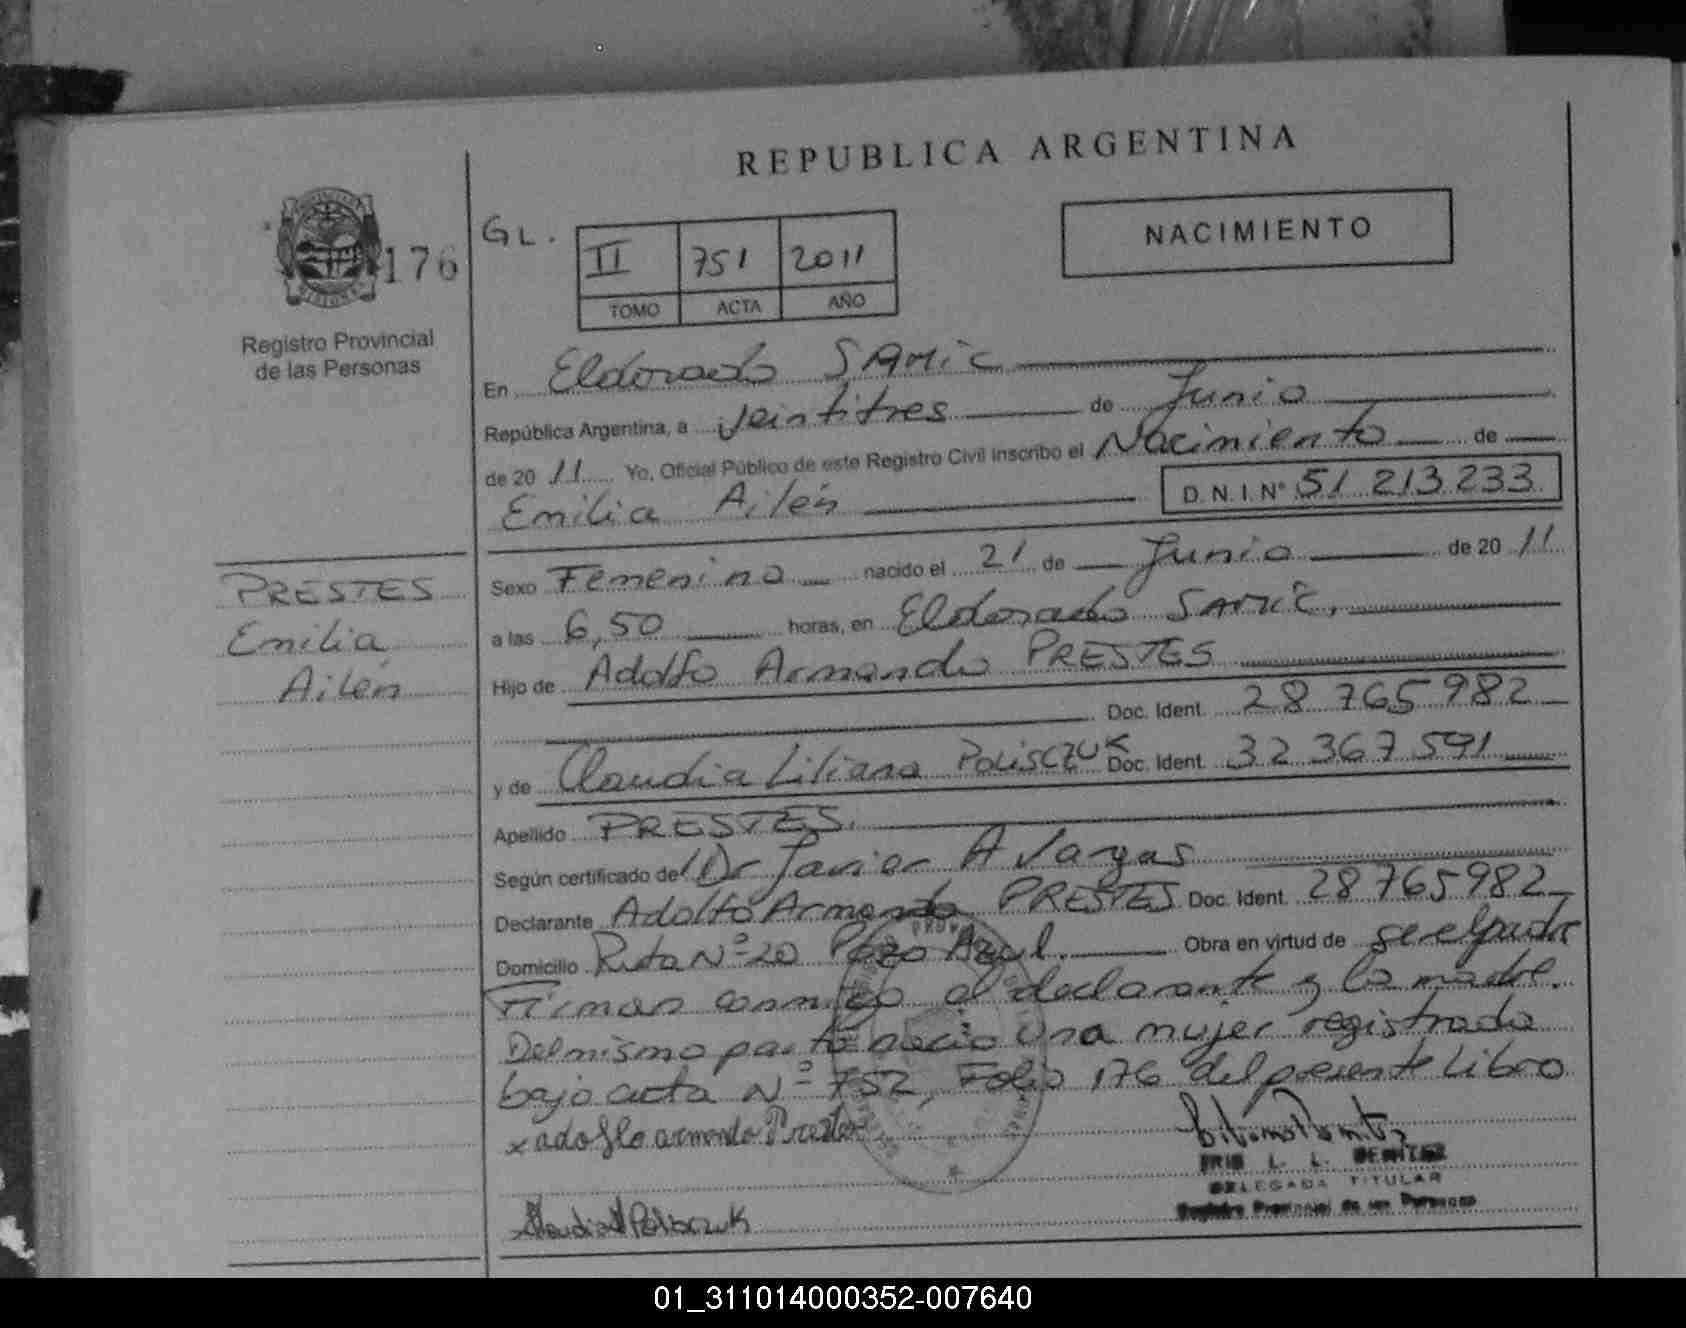 REPUBLICA ARGENTINA
NACIMIENTO
GL.
II 751 2011
TOMO ACTA AÑO
176
Registro Provincial
de las Personas
En Eldorado SAMiC
República Argentina, a Veintitres de Junio
de 2011 Yo, Oficial Público de este Registro Civil inscribo el Nacimiento de
Emilia Ailén D.N.I.Nº 51 213.233
Sexo Femenino nacido el 21 de Junio de 2011
a las 6,50 horas, en Eldorado SAMiC,
Hijo de Adolfo Armando PRESTES
Doc. Ident. 28 765982
y de Claudia Liliana POLISCZUK Doc. Ident. 32 367 591
Apellido PRESTES.
Según certificado de Dr Javier A Vargas
Declarante Adolfo Armando PRESTES Doc. Ident. 28 765982
Domicilio Ruta Nº 20 Pozo Azul. Obra en virtud de ser el padre
Firman conmigo el declarante y la madre.
Del mismo parto nació una mujer registrada
bajo acta Nº 752, Folio 176 del presente Libro
x adoflo armando Prestes
L. L. BENITEZ
DELEGADA TITULAR
Registro Provincial de las Personas
PRESTES
Emilia
Ailén
01_311014000352-007640